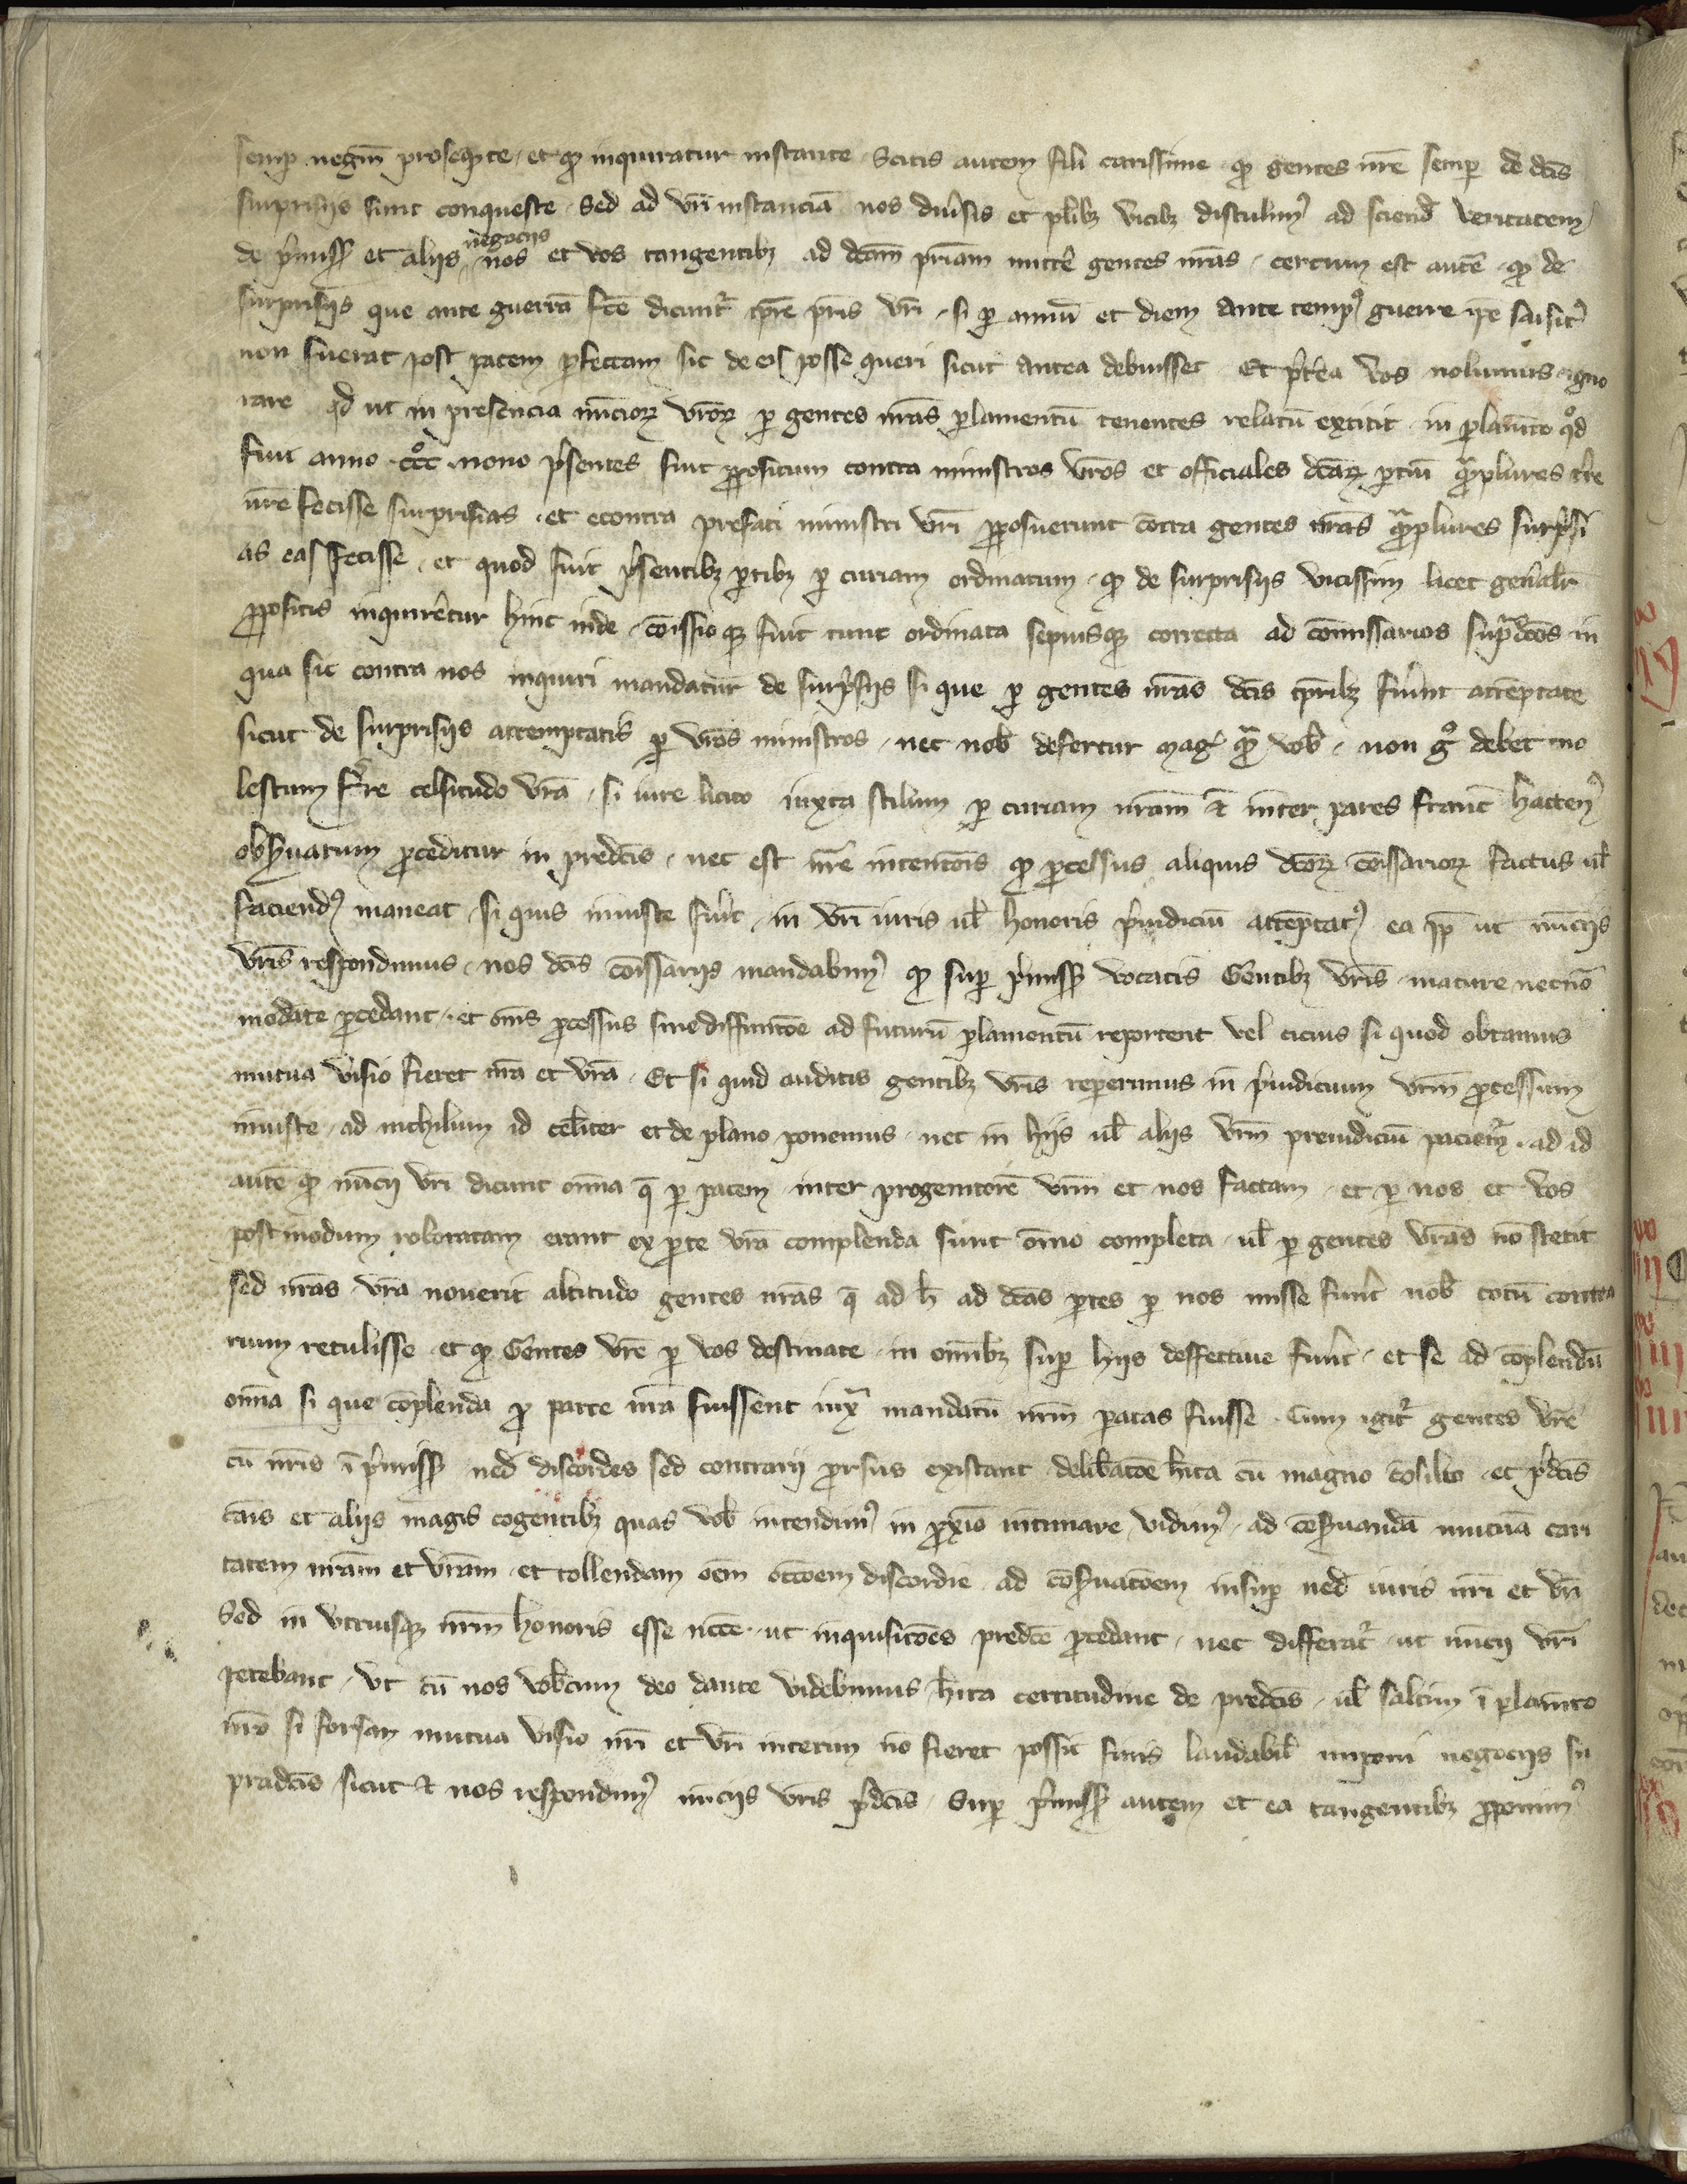 semp̲ negm̄ proseq̲nte · et qđ inquiratur instante · Scitis autem fili carissime qđ gentes nr̄e semp̲ de dc̄is
surprisijs sunt conqueste · Sed ad vr̄i instanciā nos diu̓sis et plībꝫ vicibꝫ distulimꝰ ad sciend̄ veritatem
de p̓missꝭ et alijs negocijs nos et vos tangentibꝫ ad dc̄am pr̄iam mitte̓ gentes nr̄as · certum est autē · qđ de
surprisijs que ante guerrā fc̄e dicunt̉ tp̄re pr̄is vr̄i · si p̲ annū et diem ante tempꝰ guerre
non fuerat post pacem p̲fectam sic de eis posse queri sicut antea debuisset · Et p̓t̓ea vos nolumus igno
rare qđ ut in presencia nūcioꝝ vr̄oꝝ p̲ gentes nr̄as p̲lamentū tenentes relatū extitit in p̲lam̄to qđ
fuit anno · ccc̊ · nono p̓sentes fuit p̲positum contra ministros vr̄os et officiales dc̄aꝝ p̲ciū q̲mplures t̓re
nr̄e fecisse surprisias · et econtra prefati ministri vr̄i p̲posuerunt cōtra gentes nr̄as q̲mplures surp̓si
as eas fecisse · et quod fuit p̓sentibꝫ p̲tibꝫ p̲ curiam ordinatum · qđ de surprisijs vicissim licet gen̓alr̄
p̲positis inquire̓tur hinc inde · cōissioqꝫ fuit tunc ordinata sepiusqꝫ correcta ad cōmissarios sup̲dc̄os in
qua sic contra nos inquiri mandatur de surp̓sijs si que p̲ gentes nr̄as dc̄is tp̄ribꝫ fu̓int attēptate
sicut de surprisijs attemptatis p̲ vr̄os ministros · nec nob̄ defertur mag̓ q̲m vob̄ · non g̊ debet mo
lestum f̓re celsitudo vr̄a · si iure licito iuxta stilum p̲ curiam nr̄am ⁊ inter pares franc̄ hactenꝰ
obs̓uatum p̲ceditur in predc̄is · nec est nr̄e intenc̄ois qđ p̲cessus aliquis dc̄oꝝ cōissarioꝝ factus ul̄
faciendꝰ maneat si quis iniuste fu̓it · in vr̄i iuris ul̄ honoris p̓iudiciū attēptatꝰ ea pp̄ ut nūcijs
vr̄is respondimus · nos dc̄is cōissarijs mandabimꝰ qđ sup̲ p̓missꝭ vocatis Gentibꝫ vr̄is · mature necnō
mod̓ate p̲cedant · et om̄s p̲cessus sine diffinic̄oe ad futurū p̲lamentū reportent vel cicius si quod obtamus
mutua visio fieret nr̄a et vr̄a · Et si quid auditis gentibꝫ vr̄is reperimus in p̓iudicium vr̄m p̲cessum
iniuste · ad nichilum id celīter et de plano ponemus · nec in hijs ul̄ alijs vr̄m preiudiciū paciem̉ · ad id
autē qđ nūcij vr̄i dicunt om̄ia q̄ p̲ pacem inter progenitorē vr̄m et nos factam · et p̲ nos et vos
postmodum roboratam erant ex p̲te vr̄a complenda sunt om̄io completa · ul̄ p̲ gentes vr̄as nō stetit
sed nr̄as vr̄a nouerit altitudo gentes nr̄as q̄ ad h̄ ad dc̄as p̲tes p̲ nos misse fu̓nt nob̄ totū contra
rium retulisse · et qđ Gentes vr̄e p̲ vos destinate · in omībꝫ sup̲ hijs deffectiue fu̓nt · et se ad cōplendū
om̄ia si que cōplenda p̲ parte nr̄a fuissent iux̓ mandatū nr̄m p̲atas fuisse · Cum igit̉ gentes vr̄e
cū nr̄is ī p̓missꝭ ned̄ discordes sed contrarij p̲rsus existant delib̓atoē hīta cū magno cōsilio · et p̓dc̄is
cāis et alijs magis cogentibꝫ quas vob̄ intendimꝰ in p̲xīo intimare vidimꝰ · ad cōs̓uandā mutuā cari
tatem nr̄am et vr̄am · et tollendam oēm occ̄oem discordie · ad cōs̓uatōem insup̲ ned̄ iuris nr̄i et vr̄i
Sed in vtriusqꝫ nr̄m honoris esse nc̄ce · ut inquisitōes predc̄e p̲cedant · nec differat̉ · ut nūcij vr̄i
petebant · vt cū nos vob̄cum deo dante videbimus hīta certitudine de predc̄is · ul̄ saltim ī p̲lam̄to
nr̄o si forsan mutua visio nr̄i et vr̄i interim nō fieret possit finis laudabil̄ imponi negocijs su
pradc̄is sicut ⁊ nos respondimꝰ nūcijs vr̄is p̓dc̄is · Sup̲ p̓missꝭ autem et ea tangentibꝫ p̲ponimꝰ